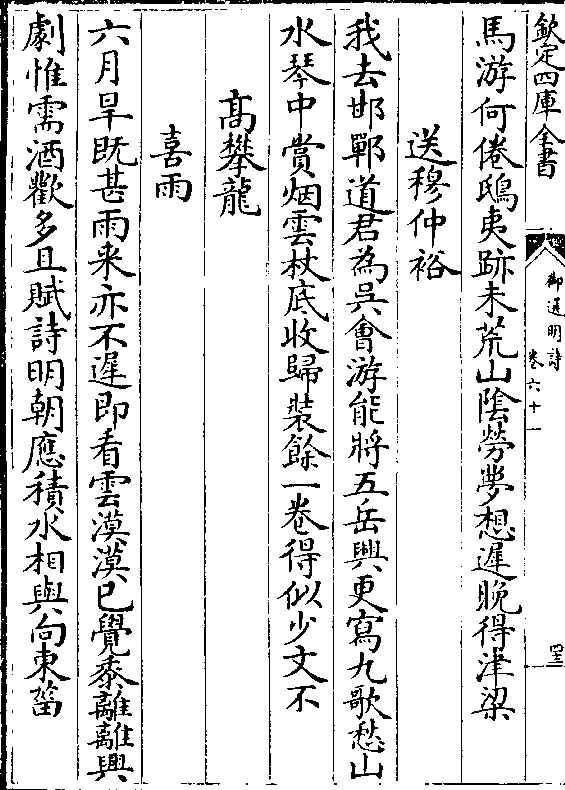 欽定四庫全書
御選明詩
卷六十一
四三
馬游何倦鴟夷跡未荒山陰勞夢想遲晚得津梁
送穆仲裕
我去邯鄲道君為吳會游能將五岳興更寫九歌愁山
水琴中賞烟雲杖底收歸裝餘一卷得似少文不
高攀龍
喜雨
六月旱既甚雨来亦不遲即看雲漠漠已覺黍離離興
劇惟需酒歡多且賦詩明朝應積水相與向東菑